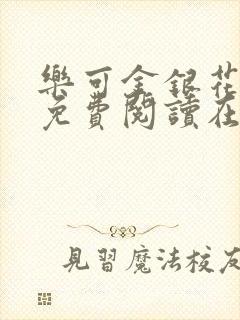 樂可金銀花
免費閱讀在
見習魔法校友